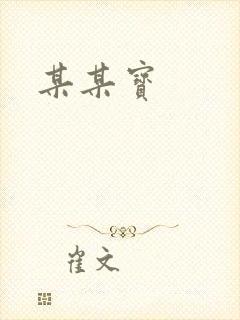 某某寶
崔文